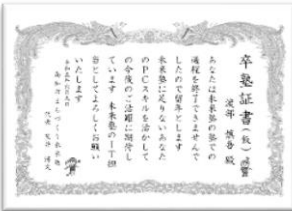 卒塾証書(仮)
渡部 慎吾 殿
あなたは未来塾の塾での
過程を終了できませんで
したので留年とします
未来塾に足りないあなた
のPCスキルを活かして
の今後のご活躍に期待し
ています 未来塾のIT担
当としてよろしくお願い
いたします